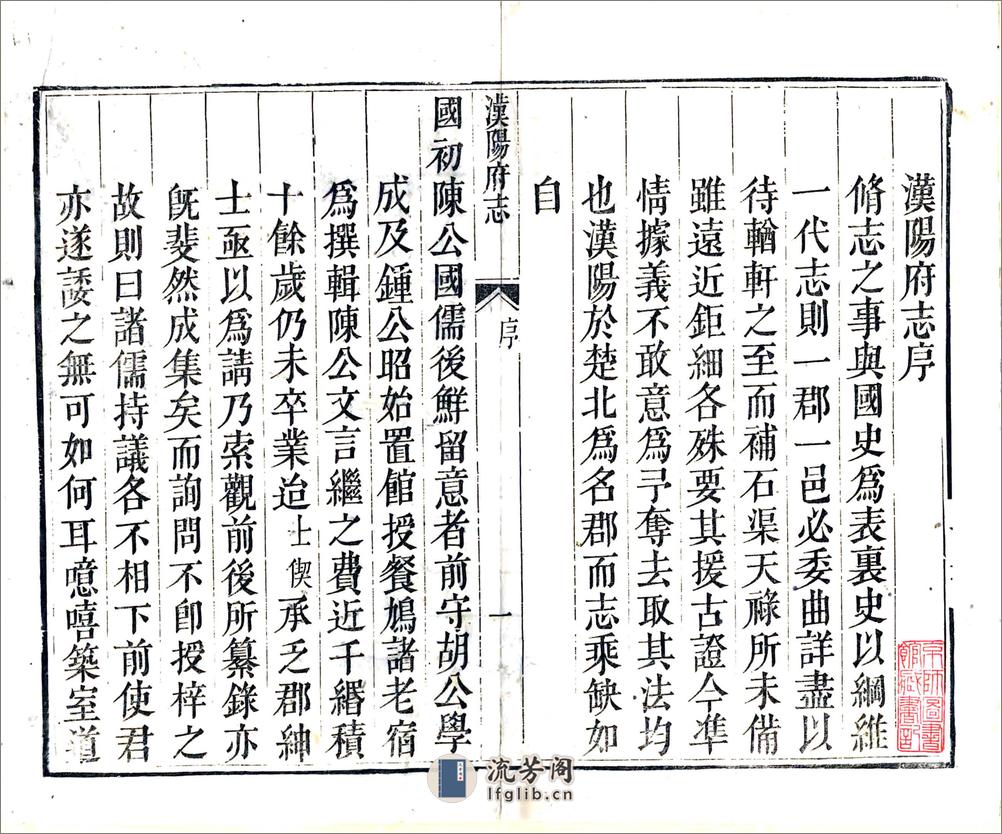 漢陽府志序
脩志之事與國史爲表裏史以綱維
一代志則一郡一邑必委曲詳盡以
待輶軒之至而補石渠天祿所未備
雖遠近鉅細各殊要其援古證今準
情據義不敢意爲予奪去取其法均
也漢陽於楚北爲名郡而志乘缺如
自
漢陽府志
序
一
國初陳公國儒後鮮留意者前守胡公學
成及鍾公昭始置館授餐鳩諸老宿
爲撰輯陳公文言繼之費近千緡積
十餘歲仍未卒業迨士偰承乏郡紳
士亟以爲請乃索觀前後所纂錄亦
旣斐然成集矣而詢問不卽授梓之
故則曰諸儒持議各不相下前使君
亦遂諉之無可如何耳噫嘻築室道
京師圖書
館藏書記
流芳阁
lfglib.cn